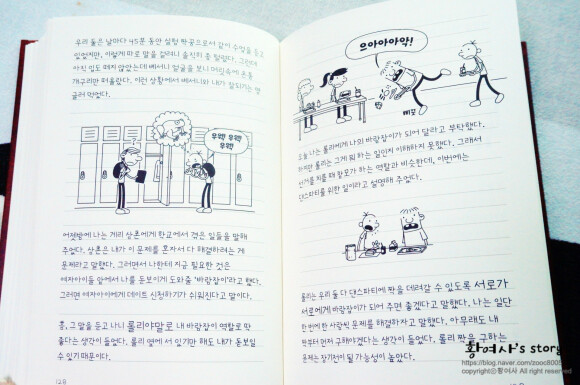 우리 둘은 날마다 45분 동안 실험 짝꿍으로서 같이 수업을 듣고
있었지만, 이렇게 따로 말을 걸려니 솔직히 좀 떨렸다. 그런데
아직 입도 떼지 않았는데 베서니 얼굴을 보니 머릿속에 온통
개구리만 떠올랐다. 이런 상황에서 베서니와 내가 잘되기는 영
글러 먹었다.
우웩! 우웩!
우웩!
어젯밤에 나는 게리 삼촌에게 학교에서 겪은 일들을 말해
주었다. 삼촌은 내가 이 문제를 혼자서 다 해결하려는 게
문제라고 말했다. 그러면서 나한테 지금 필요한 것은
여자아이들 앞에서 나를 돋보이게 도와줄 '바람잡이'라고 했다.
그러면 여자아이에게 데이트 신청하기가 쉬워진다고 말이다.
흠, 그 말을 듣고 나니 롤리야말로 내 바람잡이 역할로 딱
좋다는 생각이 들었다. 롤리 옆에 서 있기만 해도 내가 돋보일
수 있기 때문이다.
128
으아아아악!
삐끗
오늘 나는 롤리에게 나의 바람잡이가 되어 달라고 부탁했다.
하지만 롤리는 그게 뭐 하는 일인지 이해하지 못했다. 그래서
선거를 치를 때 참모가 하는 역할과 비슷한데, 이번에는
댄스파티를 위한 일이라고 설명해 주었다.
롤리는 우리 둘 다 댄스파티에 짝을 데려갈 수 있도록 서로가
서로에게 바람잡이가 되어 주면 좋겠다고 말했다. 나는 일단
한 번에 한 사람씩 문제를 해결하자고 말했다. 아무래도 내
짝부터 먼저 구해야겠다는 생각이 들었다. 롤리 짝을 구하는
문제는 장기전이 될 가능성이 높았다.
황여사's story
https://blog.naver.com/zooc8005
copyright ⓒ황여사 All rights reserved.